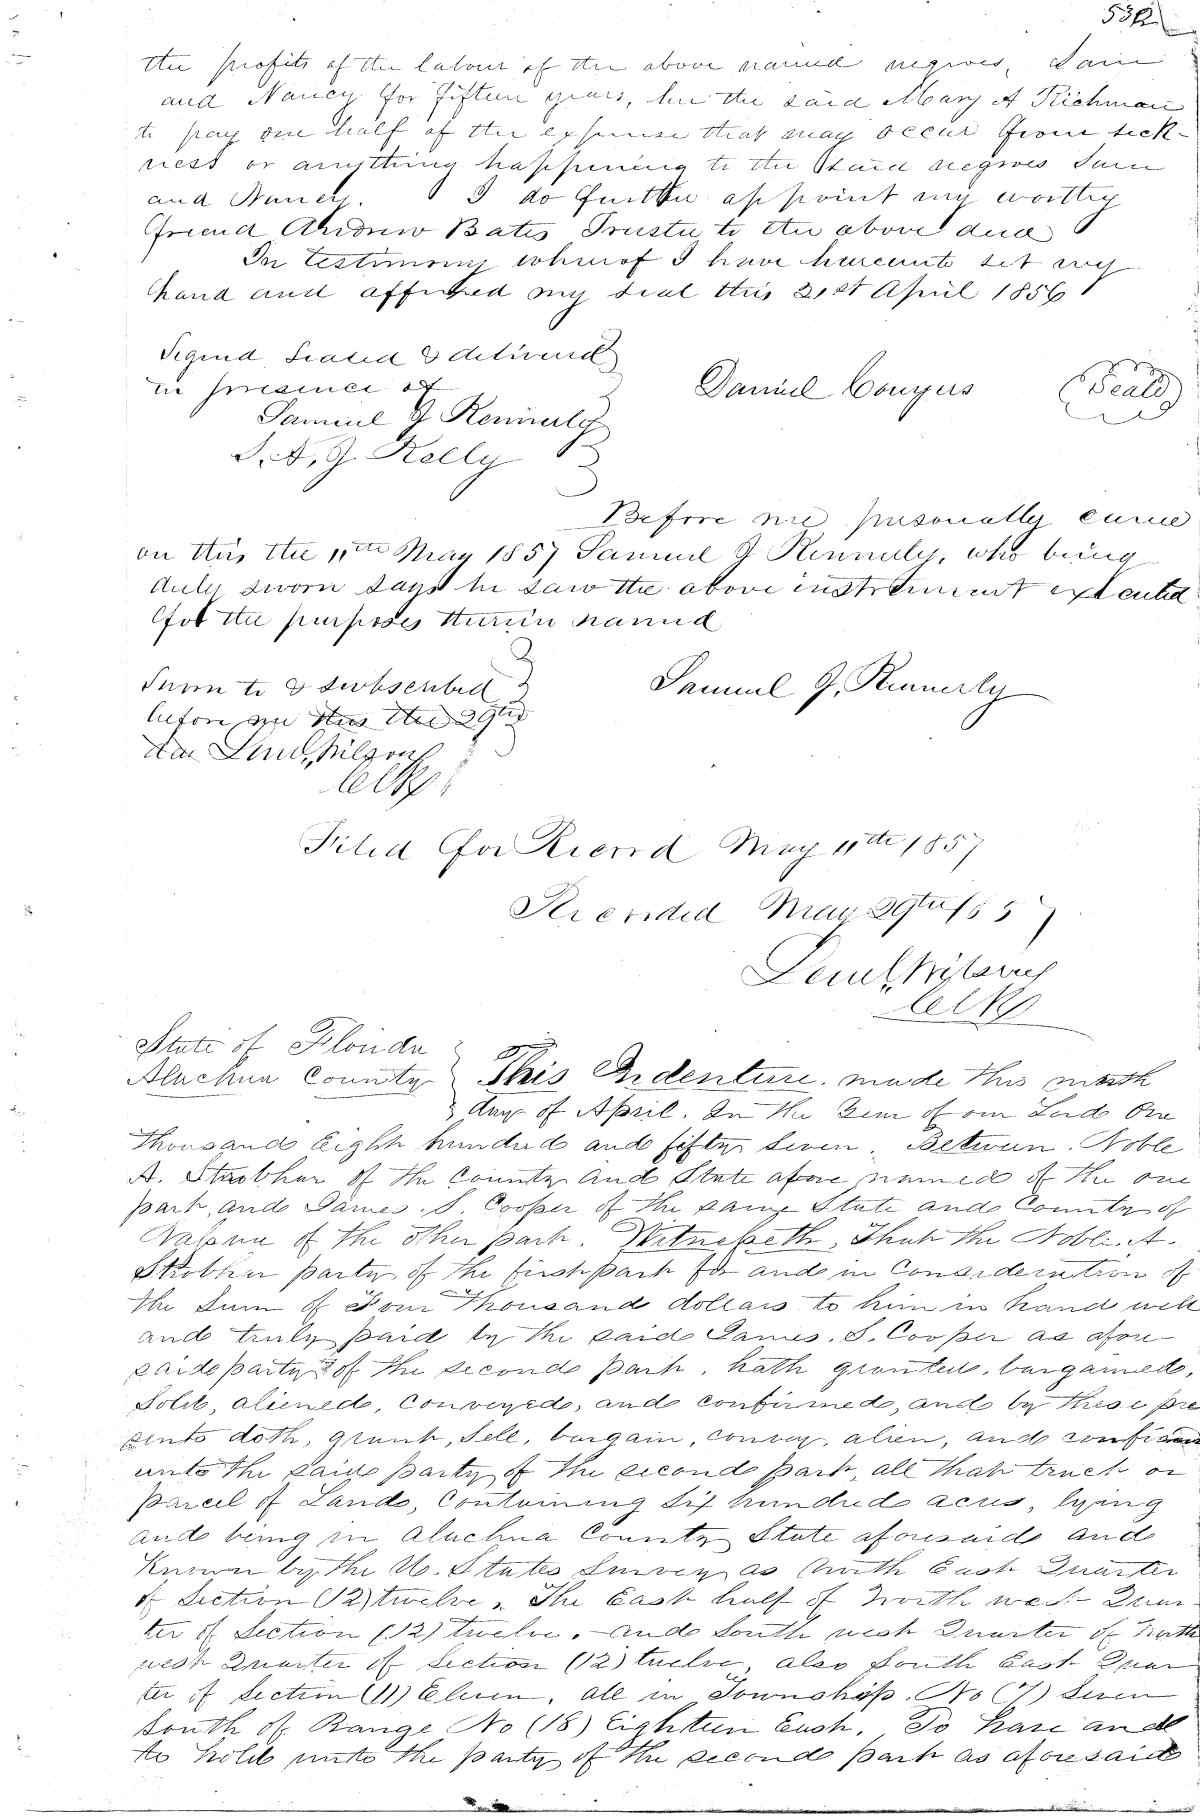 532
the profits of the labour of the above named negroes, Sam
and Nancy for fifteen years, her the said Mary A Richman
to pay one half of the expense that may occur from sick-
ness or anything happening to the said negroes Sam
and Nancy. I do further appoint my worthy
friend Andrew Bates Trustee to the above deed
In testimony whereof I have hereunto set my
hand and affixed my seal this 21st April 1856
Signed Sealed & delivered
in presence of
Daniel Conyers (Seald)
Samuel J Kennerly
S. A. J Kelly
Before me personally came
on this the 11th May 1857 Samuel J Kennerly, who being
duly sworn says he saw the above instrument executed
for the purposes therein named
Sworn to & subscribed
Samuel J. Kennerly
before me this the 29th
Leml. Wilson
Clk
Filed for Record May 11th 1857
Recorded May 29th/57
Leml. Wilson
Clk
State of Florida
Alachua County This Indenture. made this ninth
day of April. In the Year of our Lord One
Thousand Eight hundred and fifty Seven. Between. Noble
A. Strobhar of the County and State above named of the one
part, and James. S. Cooper of the same State and County of
Nassau of the other part. Witnesseth, That the Noble. A.
Strobhar party of the first part for and in Consideration of
the Sum of Four Thousand dollars to him in hand well
and truly paid by the said James. S. Cooper as afore-
said party of the second part. hath granted. bargained,
Sold, aliened, Conveyed, and confirmed, and by these pre
sents doth, grant, Sell, bargain, convey, alien, and confirm
unto the said party of the second part, all that tract or
parcel of Land, Containing Six hundred acres, lying
and being in Alachua County State aforesaid and
Known by the U. States Survey as North East Quarter
of Section (12) twelve, The East half of North west Quar-
ter of Section (12) twelve, - and South west Quarter of North
west Quarter of Section (12) twelve, also South East Quar
ter of Section (11) Eleven, all in Township. No (7) Seven
South of Range No (18) Eighteen East. To have and
to hold unto the party of the second part as aforesaid